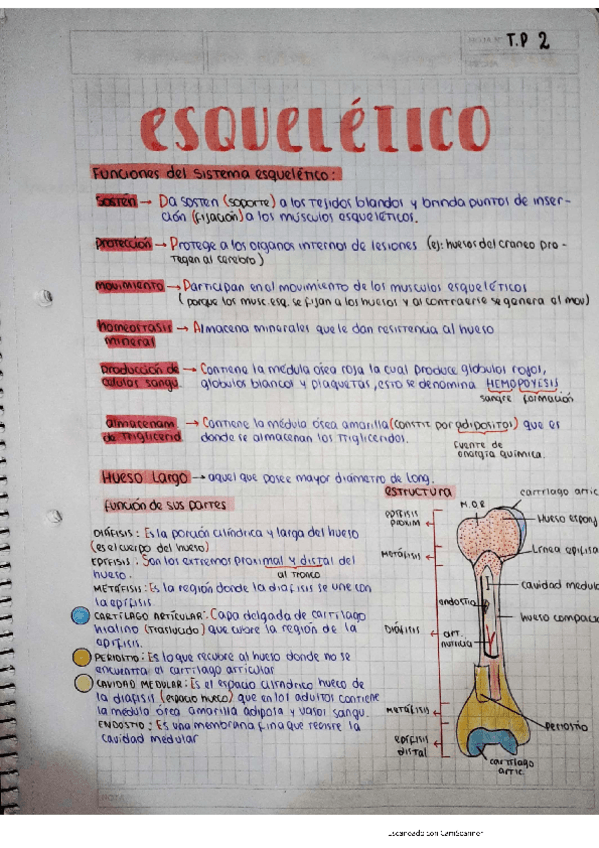 T.P 2
esquelético
Funciones del sistema esquelético:
sostén → Da sosten (soporte) a los tejidos blandos y brinda puntos de inser-
ción (fijación) a los músculos esqueléticos.
protección → Protege a los organos internos de lesiones (ej: huesos del craneo pro-
tegen al cerebro)
movimiento → Participan en el movimiento de los musculos esqueléticos
(porque los musc. esq. se fijan a los huesos y al contraerse se genera el mov)
homeostasis → Almacena minerales que le dan resistencia al hueso
mineral
producción de → Contiene la médula ósea roja la cual produce globulos rojos,
celulas sangu. globulos blancos y plaquetas, esto se denomina HEMOPOYESIS
sangre formación
almacenam → Contiene la médula ósea amarilla (constit por adipositos) que es
de triglicerid donde se almacenan los trigliceridos.
fuente de
energía química.
Hueso Largo → aquel que posee mayor diámetro de long.
función de sus partes
DIÁFISIS: Es la porción cilíndrica y larga del hueso
(es el cuerpo del hueso)
EPÍFISIS: Son los extremos proximal y distal del
hueso.
al tronco
METÁFISIS: Es la región donde la diáfisis se une con
la epífisis.
CARTÍLAGO ARTICULAR: Capa delgada de cartílago
hialino (traslucido) que cubre la región de la
epífisis.
PERIOSTIO: Es lo que recubre al hueso donde no se
encuentra el cartílago articular
CAVIDAD MEDULAR: Es el espacio cilíndrico hueco de
la diáfisis (espacio hueco) que en los adultos contiene
la médula ósea amarilla adiposa y vasos sangu.
ENDOSTIO: Es una membrana fina que reviste la
cavidad medular
estructura
epífisis
proxim
M.O.R
cartílago artic
Hueso espong
Metáfisis
Línea epifisa
cavidad medula
endostio
hueso compacto
DIÁFISIS
art.
nutricia
metáfisis
periostio
epífisis
distal
cartílago
artic
NOTA
Escaneado con CamScanner